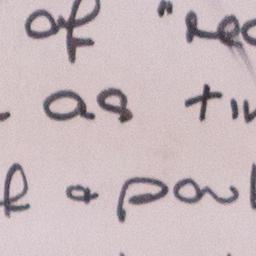 of "rec
as tin
f a pow